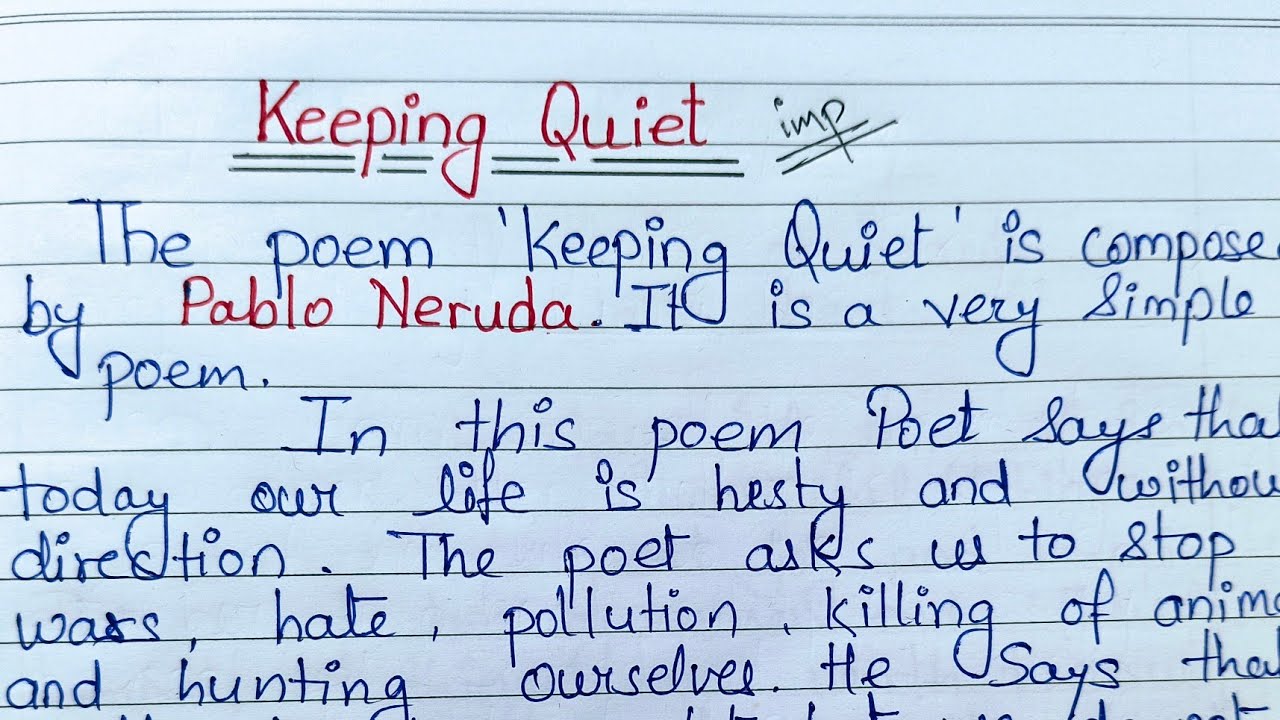 Keeping Quiet imp
The poem 'Keeping Quiet' is compose
by Pablo Neruda. It is a very Simple
poem.
In this poem Poet Says tha
today our life is hesty and withou
direction. The poet asks us to stop
wars, hate, pollution, killing of anima
and hunting ourselves. He Says tha